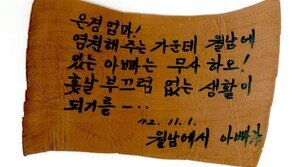 은경 엄마!
염원해 주는 가운데 월남에
있는 아빠는 무사하오!
훗날 부끄럼 없는 생활이
되기를 —··
72. 11. 1.
월남에서 아빠가